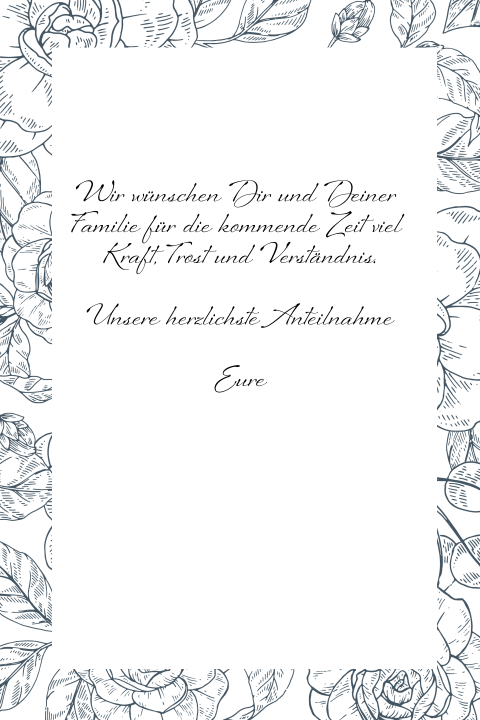 Wir wünschen Dir und Deiner
Familie für die kommende Zeit viel
Kraft, Trost und Verständnis.
Unsere herzlichste Anteilnahme
Eure